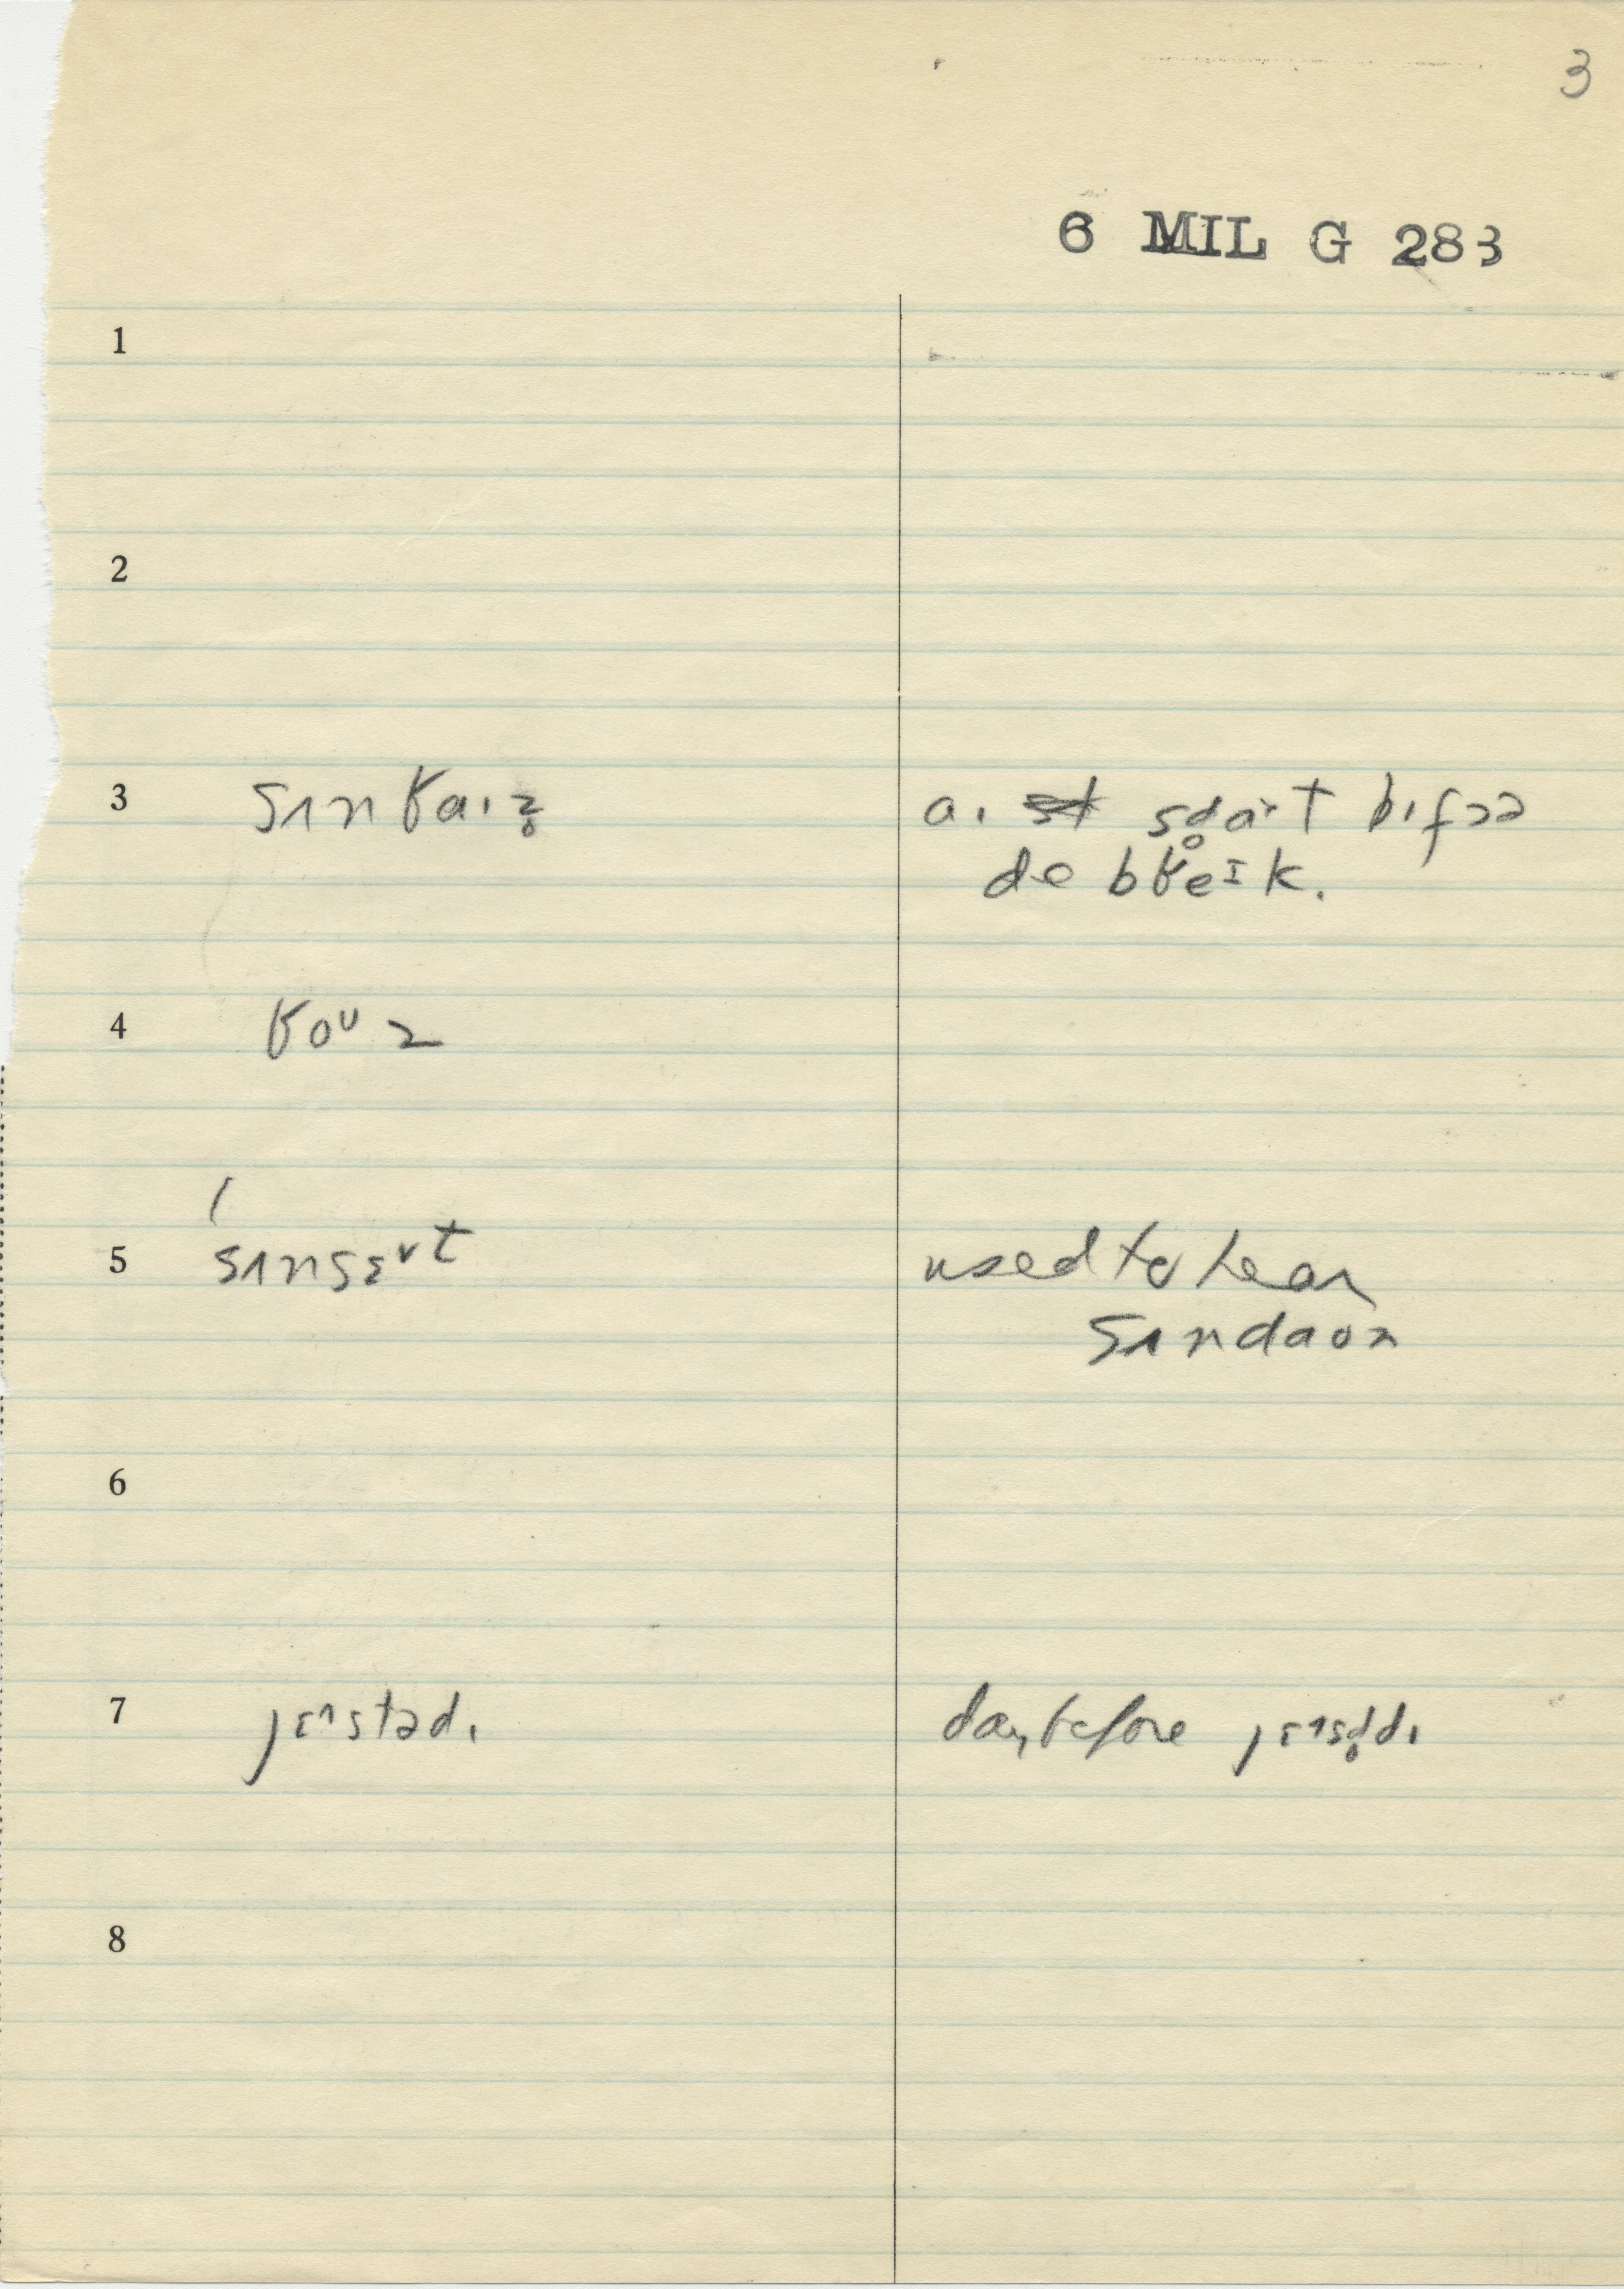 3
6 MIL G 283
1
2
3 sɪnʁaɪz̥ a. sd̥aɪt bɪfɔə
də bʁeɪk.
4 ʁoʊz
5 sɪnsɛʌt used to hear
sɪndaʊn
6
7 jɛɪstədɪ day before jɛɪsd̥dɪ
8